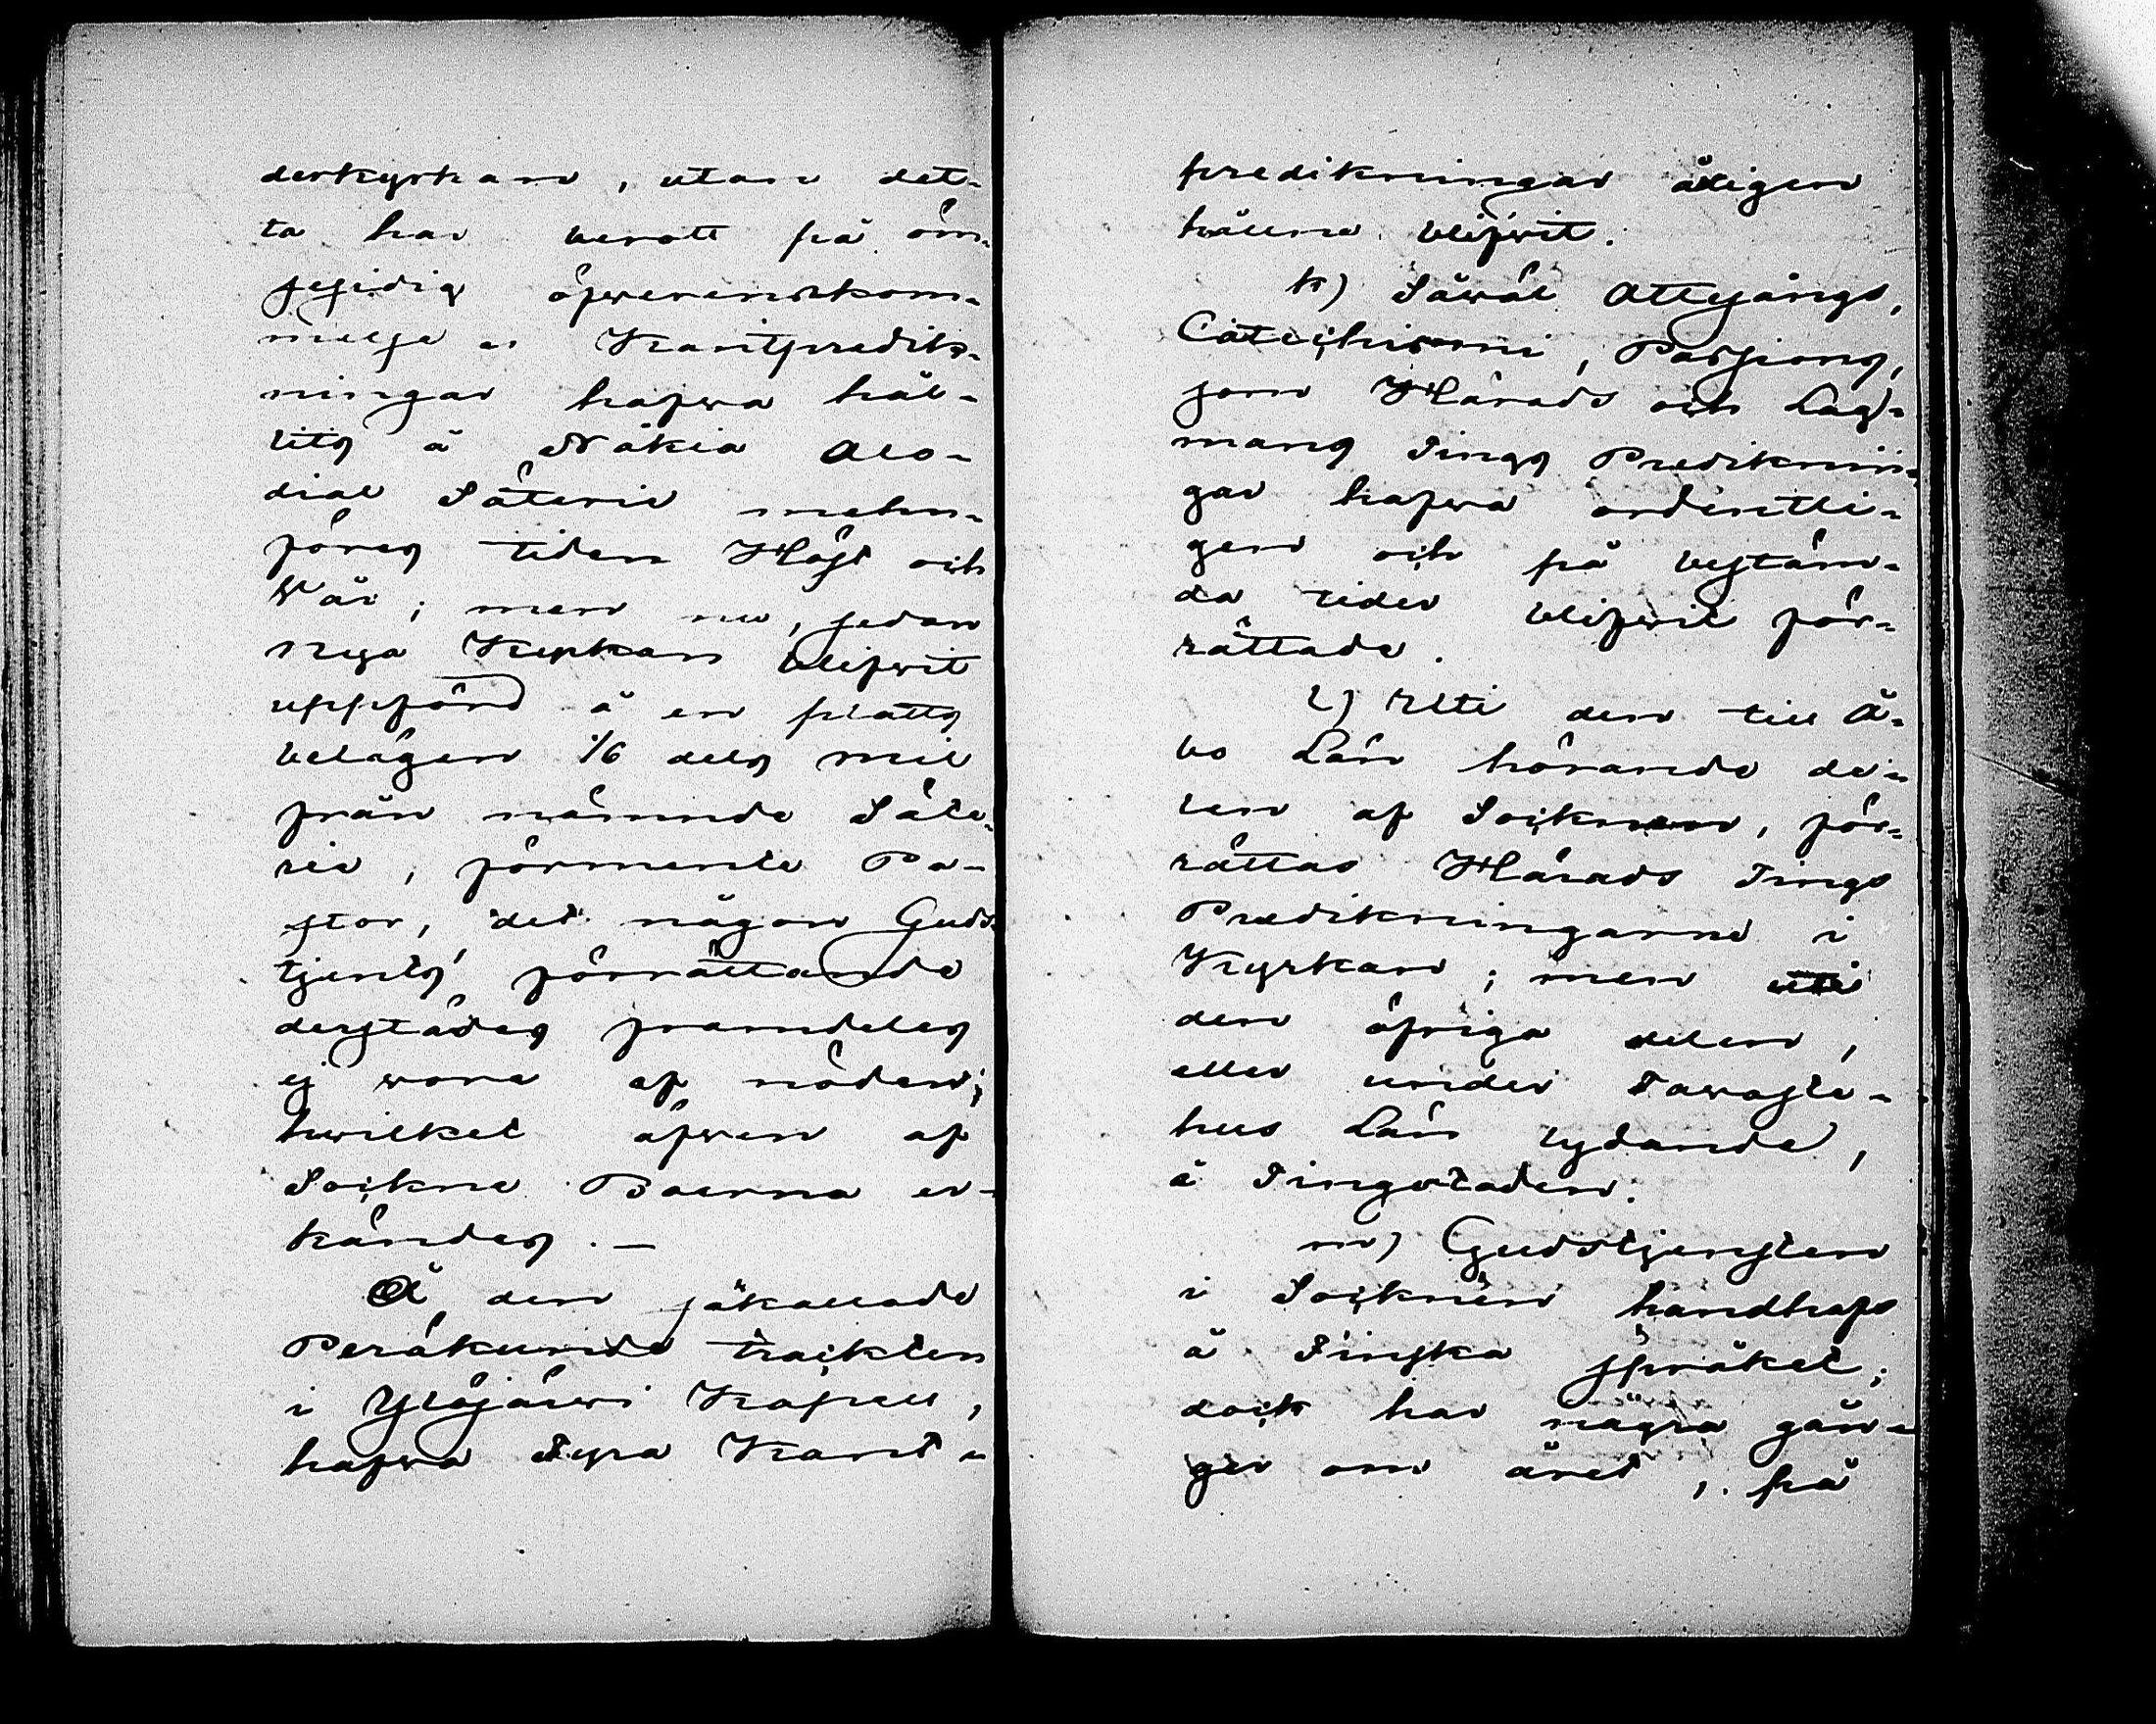 derkyrkan, utan det-
ta har berott på öm-
sesidig öfverenskom-
melse. Kantpredik-
ningar hafwa hål-
lits å Nåkia Alo-
dial Säterie mehn-
föres tiden Höst och
Wår; men nu, sedan
nya Kyrkan blifwit
uppförd å en platts
belägen 1/6 dels mil
från nämnde Säte-
rie, förmente Pa-
stor, det någon Guds-
tjensts förrättande
derstädes framdeles
ej wore af nöden;
hwilket äfwen af
Sockne Boerna er-
kändes. —
Å den såkallade
Peräkunda trackten
i Ylöjärwi Kapell,
hafwa Fyra Kant-
predikningar årligen
hållne blifwit.
k) Såwäl Attgångs,
Catechismi, Passions,
som Härads och Lag-
mans Tings Prediknin-
gar hafwa ordentli-
gen och på bestäm-
da tider blifwit för-
rättade.
l) Uti den till Å-
bo Län hörande de-
len af Socknen, för-
rättas Härads Tings
Predikningarne i
Kyrkan; men uti
den öfriga delen,
eller under Tawaste-
hus Län lydande,
å Tingsstaden.
m) Gudstjensten
i Socknen handhafs
å Finska språket;
dock har några gån-
ger om året, på